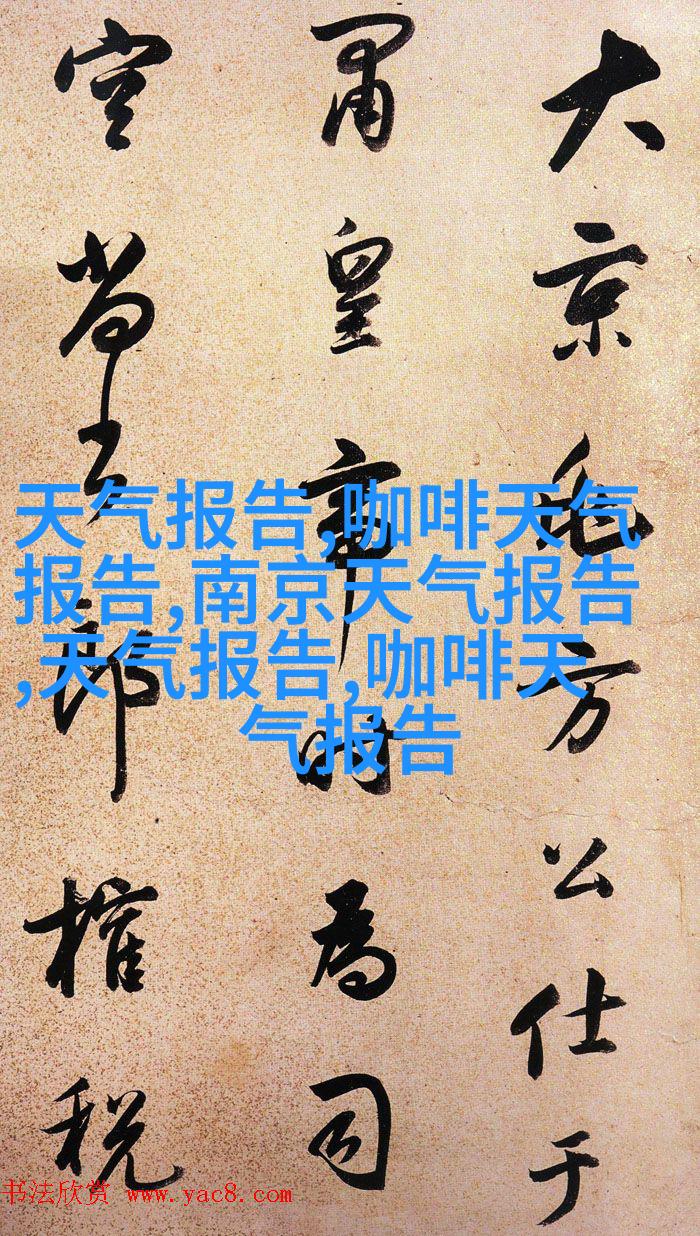 大京兆方公仕于
肅皇帝时為司
空尚書郎榷税
天气报告,咖啡天气
报告,南京天气报告
,天气报告,咖啡天
气报告
书法欣赏 www.yac8.com